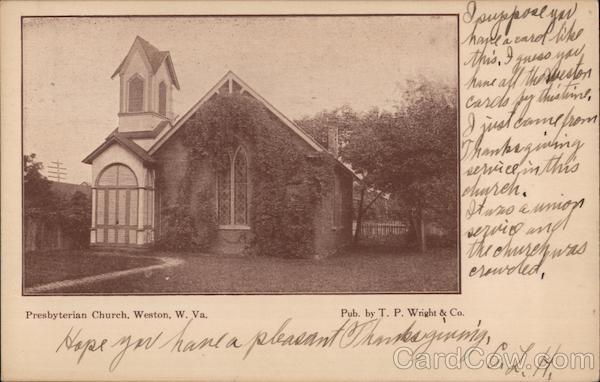 I suppose you
have a card like
this. I guess you
have all the Weston
cards by this time.
I just came from
Thanksgiving
service in this
church.
It was a union
service and
the church was
crowded.
Presbyterian Church, Weston, W. Va.
Pub. by T. P. Wright & Co.
Hope you have a pleasant Thanksgiving.
C. L. H.
CardCow.com